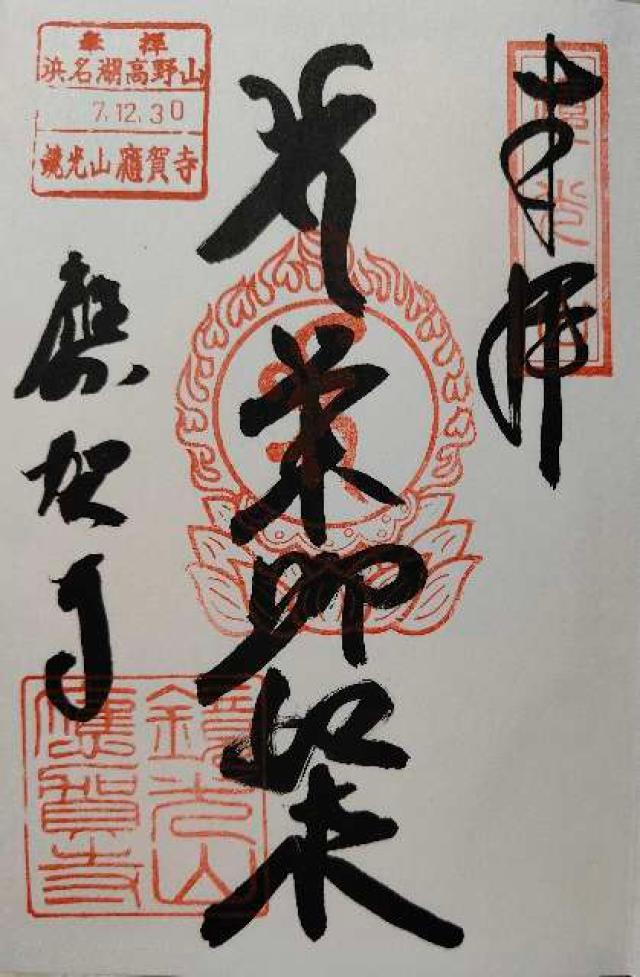 奉拝
薬師如来
應賀寺
奉拝
浜名湖高野山
7.12.30
鏡光山應賀寺
鏡光山
應賀寺